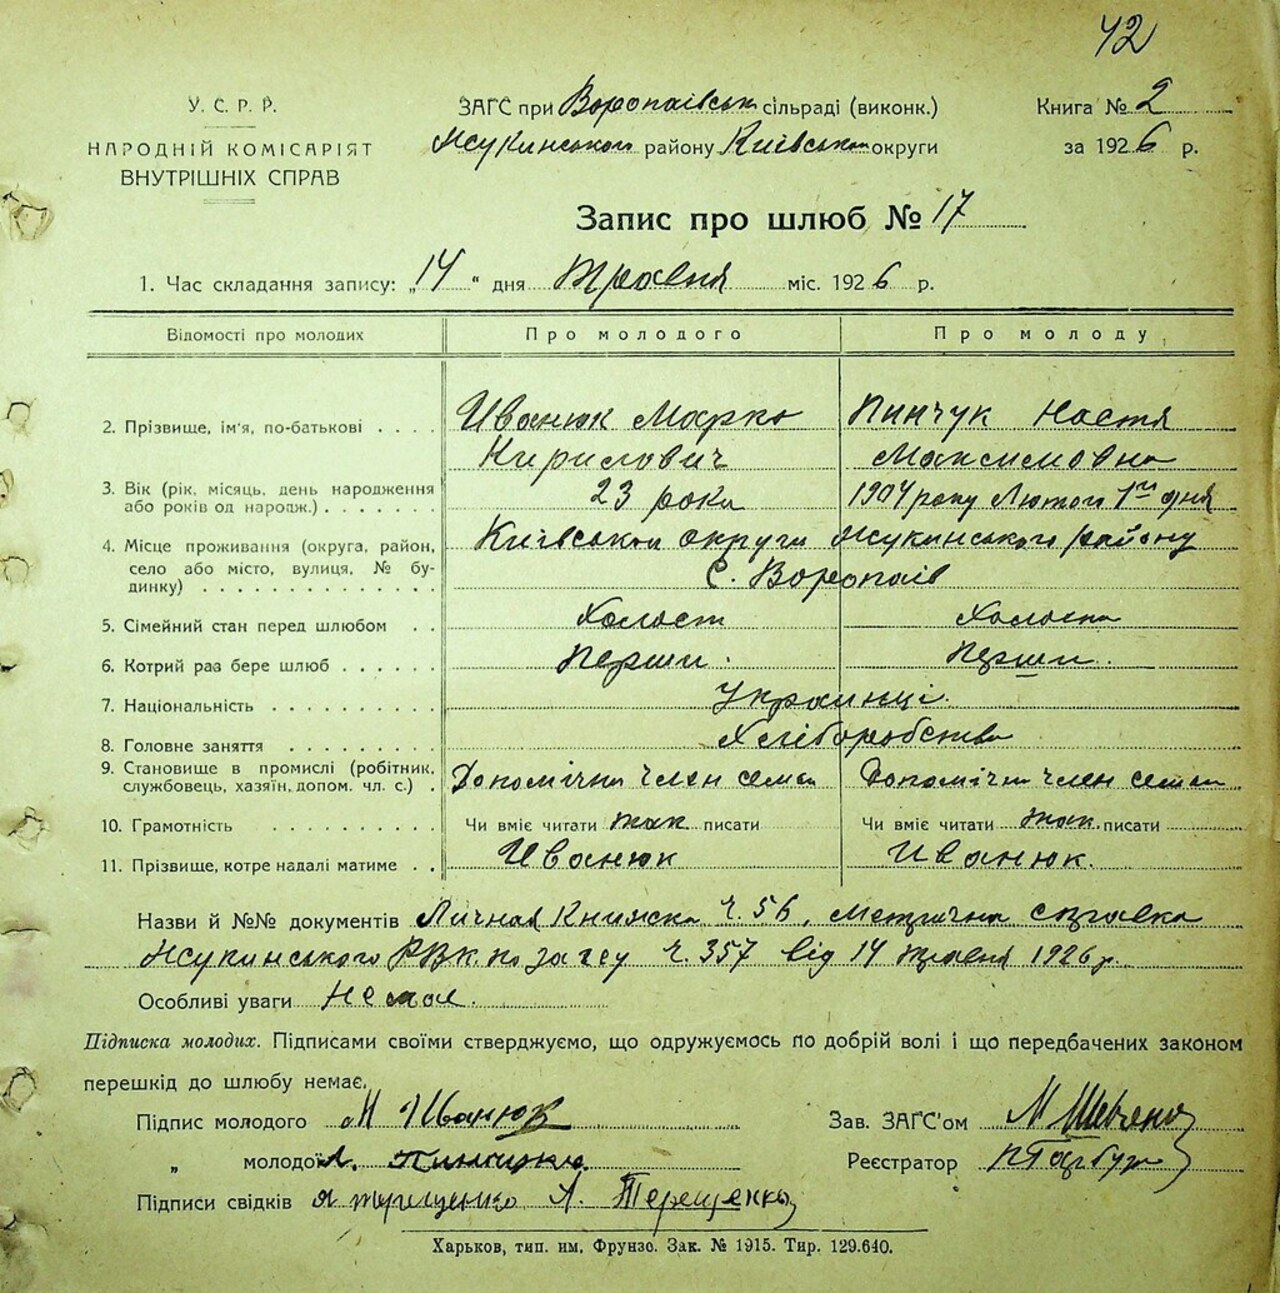 42
У. С. Р. Р.
НАРОДНІЙ КОМІСАРІЯТ
ВНУТРІШНІХ СПРАВ
ЗАГС при Воропаівськ сільраді (виконк.)
Жукинського району Київськои округи
Книга № 2
за 1926 р.
Запис про шлюб № 17
1. Час складання запису: „14“ дня Травня міс. 1926 р.
Відомості про молодих Про молодого Про молоду
2. Прізвище, ім'я, по-батькові Иванюк Марко Пинчук Настя
Кирилович Максимовна
3. Вік (рік, місяць, день народження або років од народж.) 23 роки 1904 року Лютого 1го дня
4. Місце проживання (округа, район, село або місто, вулиця, № будинку) Київськои округи Жукинського району
С. Воропаів
5. Сімейний стан перед шлюбом Холост Холоста
6. Котрий раз бере шлюб Перши Перши.
7. Національність Украинці.
8. Головне заняття Хліборобства
9. Становище в промислі (робітник, службовець, хазяїн, допом. чл. с.) Допомічни член семьи Допомічни член семьи
10. Грамотність Чи вміє читати так писати Чи вміє читати так. писати
11. Прізвище, котре надалі матиме Иванюк Иванюк.
Назви й №№ документів Личная Книжка Ч. 56, Метрична справка
Жукинського РВК. по загсу Ч. 357 від 14 травня 1926 р.
Особливі уваги Немає.
Підписка молодих. Підписами своїми стверджуємо, що одружуємось по добрій волі і що передбачених законом
перешкід до шлюбу немає.
Підпис молодого М Иванюк Зав. ЗАГС'ом М
„ молодої Реєстратор
Підписи свідків А. Терещенко
Харьков, тип. им. Фрунзо. Зак. № 1915. Тир. 129.640.